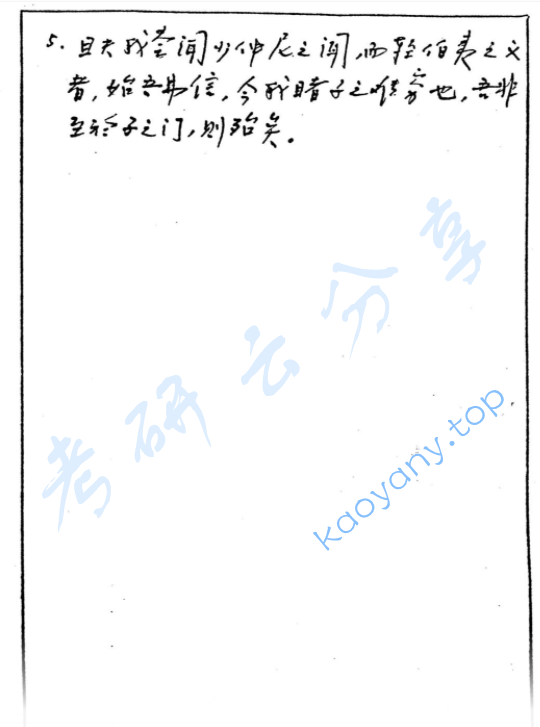 5. 且夫我尝闻少仲尼之闻,而轻伯夷之义
者,始吾弗信,今我睹子之难穷也,吾非
至于子之门,则殆矣。
考研云分享
kaoyany.top